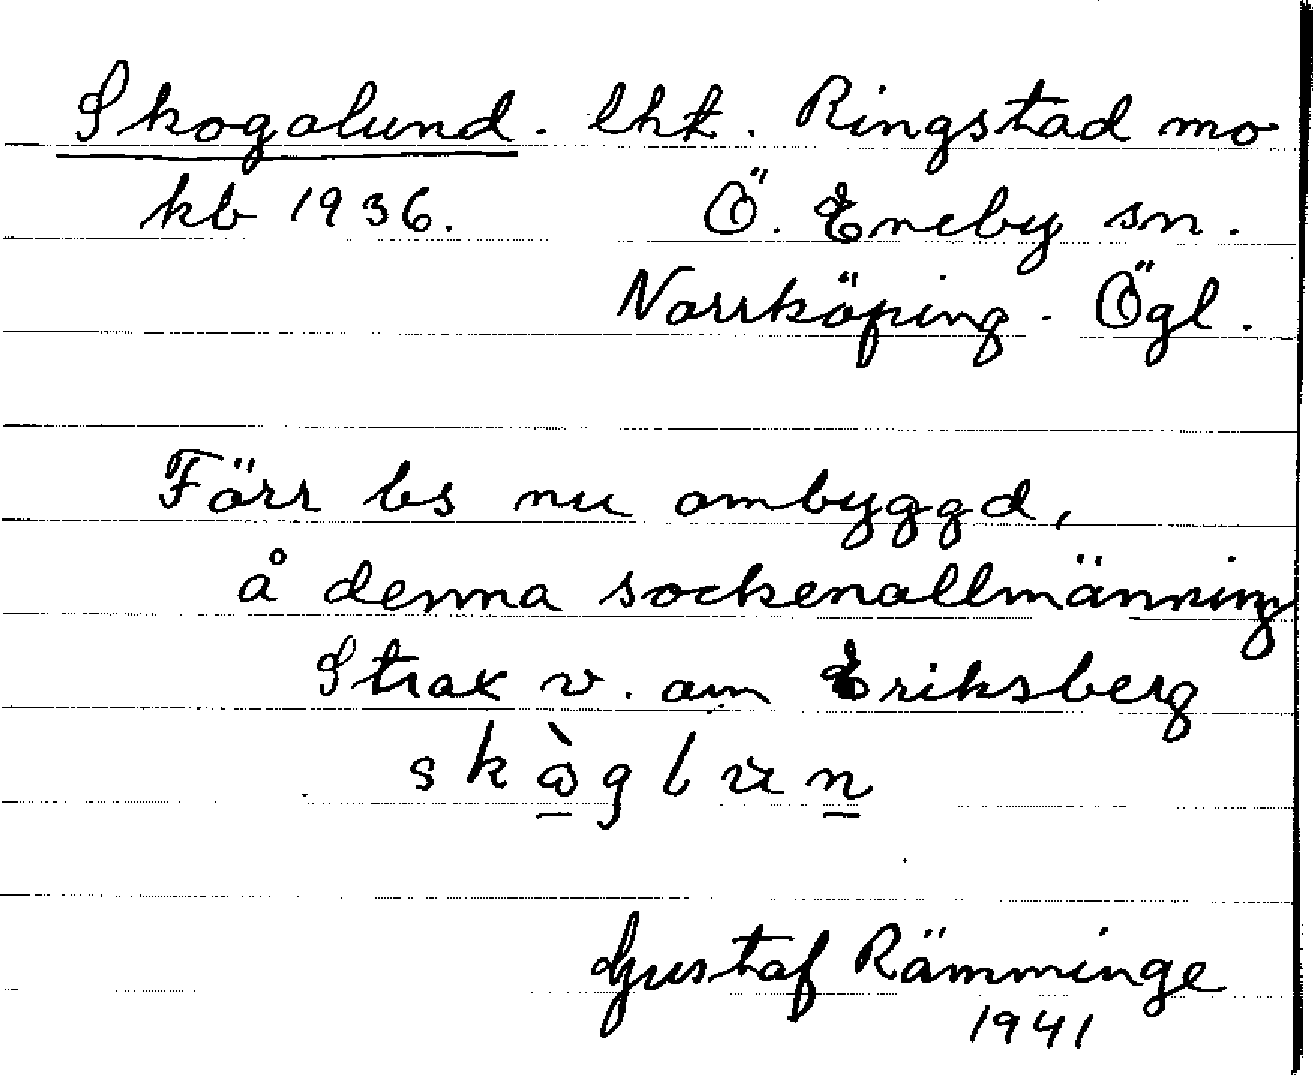 Skogalund. lht. Ringstad mo
kb 1936. Ö. Eneby sn.
Norrköping. Ögl.
Förr bs nu ombyggd,
å denna sockenallmänning
Strax v. om Eriksberg
Gustaf Rämminge
1941